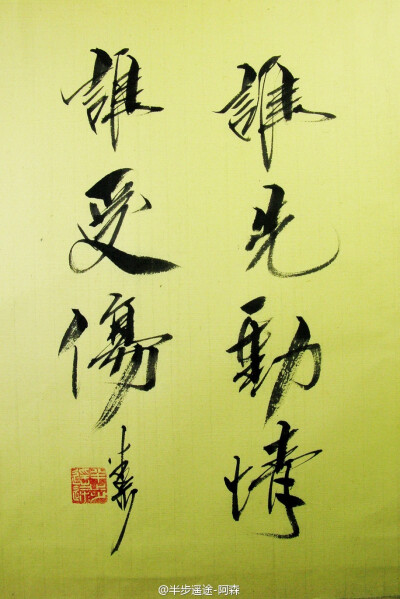 誰先動情
誰受傷
@半步遥途-阿森